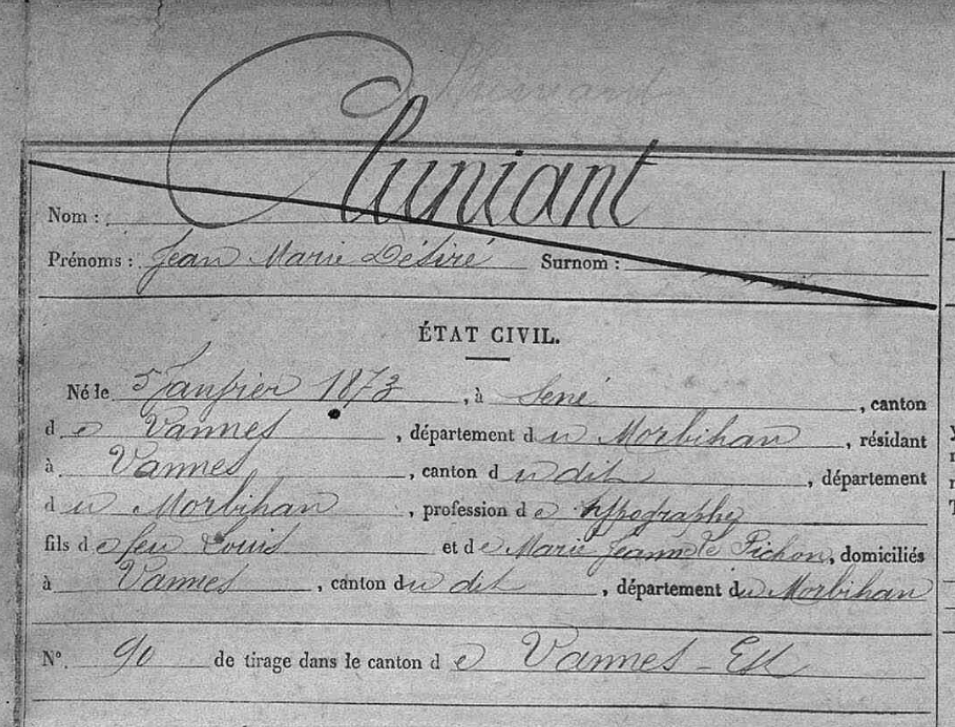 Nom : Cluniant
Prénoms : Jean Marie Désiré Surnom :
ÉTAT CIVIL.
Né le 5 Janvier 1873, à Sené, canton
de Vannes, département du Morbihan, résidant
à Vannes, canton du dit, département
du Morbihan, profession de typographe
fils de feu Louis et de Marie Jeanne Le Pichon, domiciliés
à Vannes, canton du dit, département du Morbihan
N° 90 de tirage dans le canton de Vannes-Est